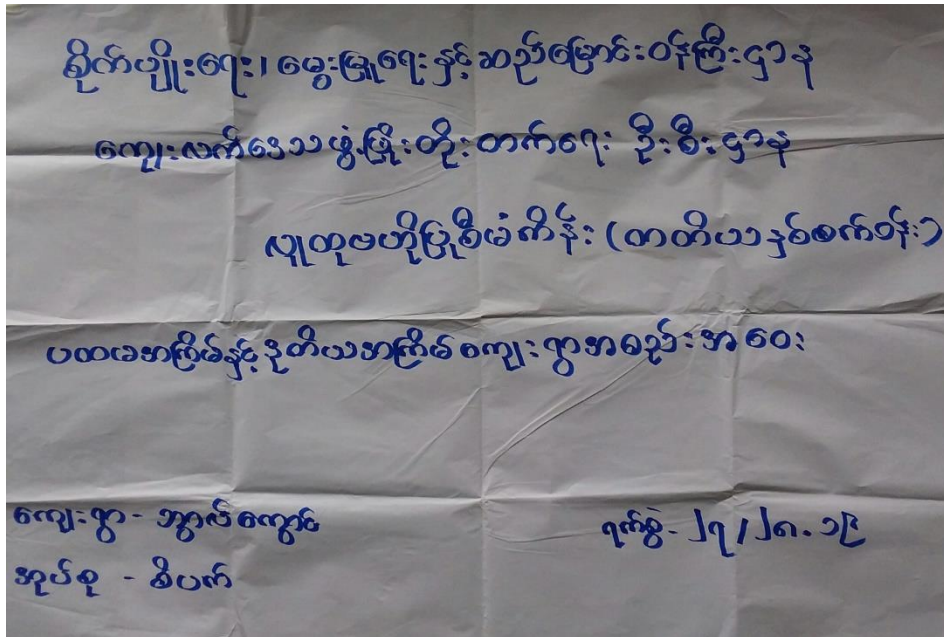 စိုက်ပျိုးရေး၊ မွေးမြူရေးနှင့် ဆည်မြောင်းဝန်ကြီးဌာန
ကျေးလက်ဒေသဖွံ့ဖြိုးတိုးတက်ရေး ဦးစီးဌာန
လူထုဗဟိုပြုစီမံကိန်း (တတိယနှစ်စက်ဝန်း)
ပထမအကြိမ်နှင့် ဒုတိယအကြိမ် ကျေးရွာအစည်းအဝေး
ကျေးရွာ - ဘွာလ်ကွောင်
အုပ်စု - စီပက်
ရက်စွဲ -